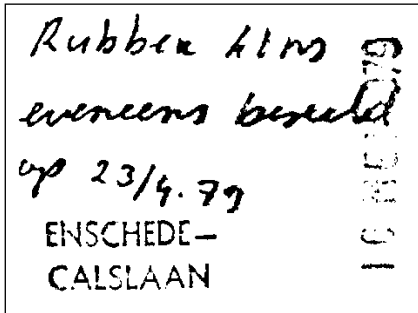 Rubber
eveneens besteld
op 23/4.79
ENSCHEDE-
CALSLAAN